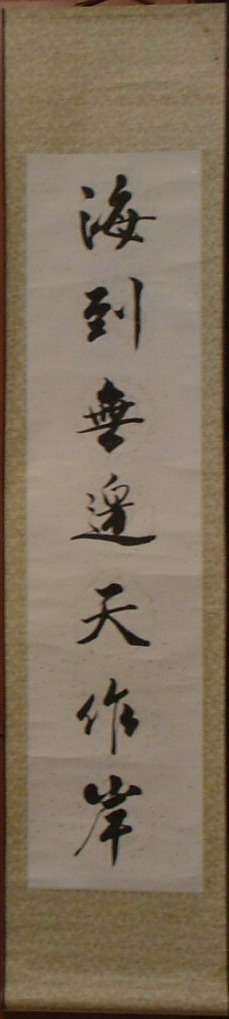 海到無邊天作岸